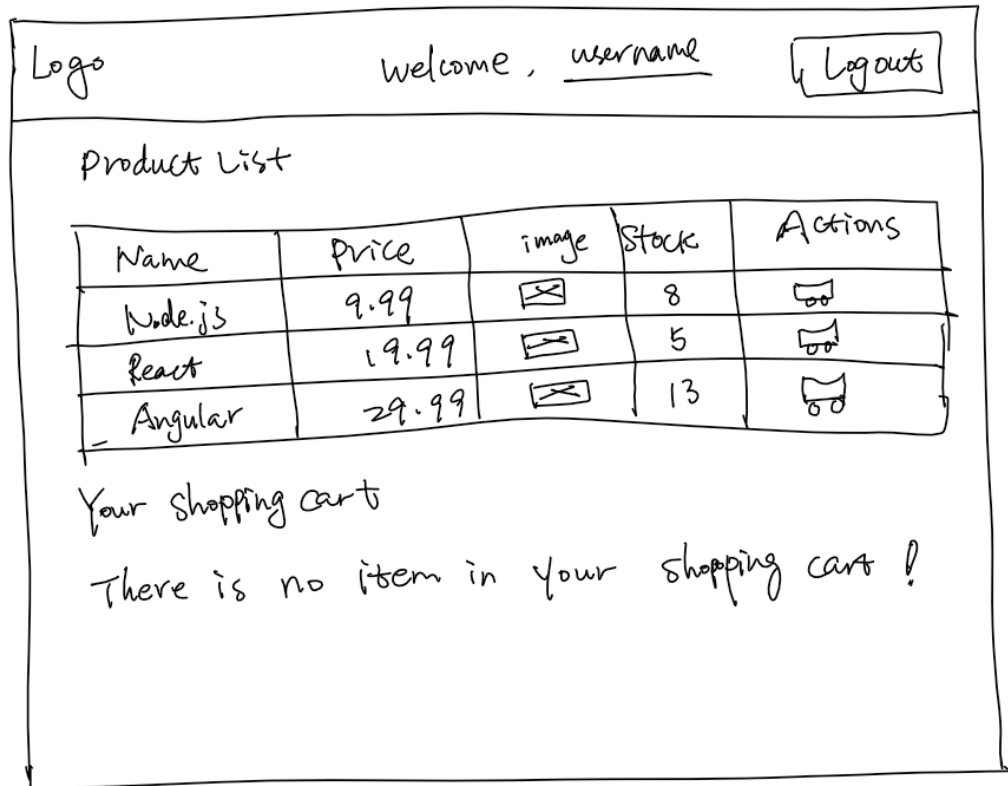 Logo welcome, username Logout
Product List
Name Price image Stock Actions
Node.js 9.99 8
React 19.99 5
Angular 29.99 13
Your shopping cart
There is no item in your shopping cart!